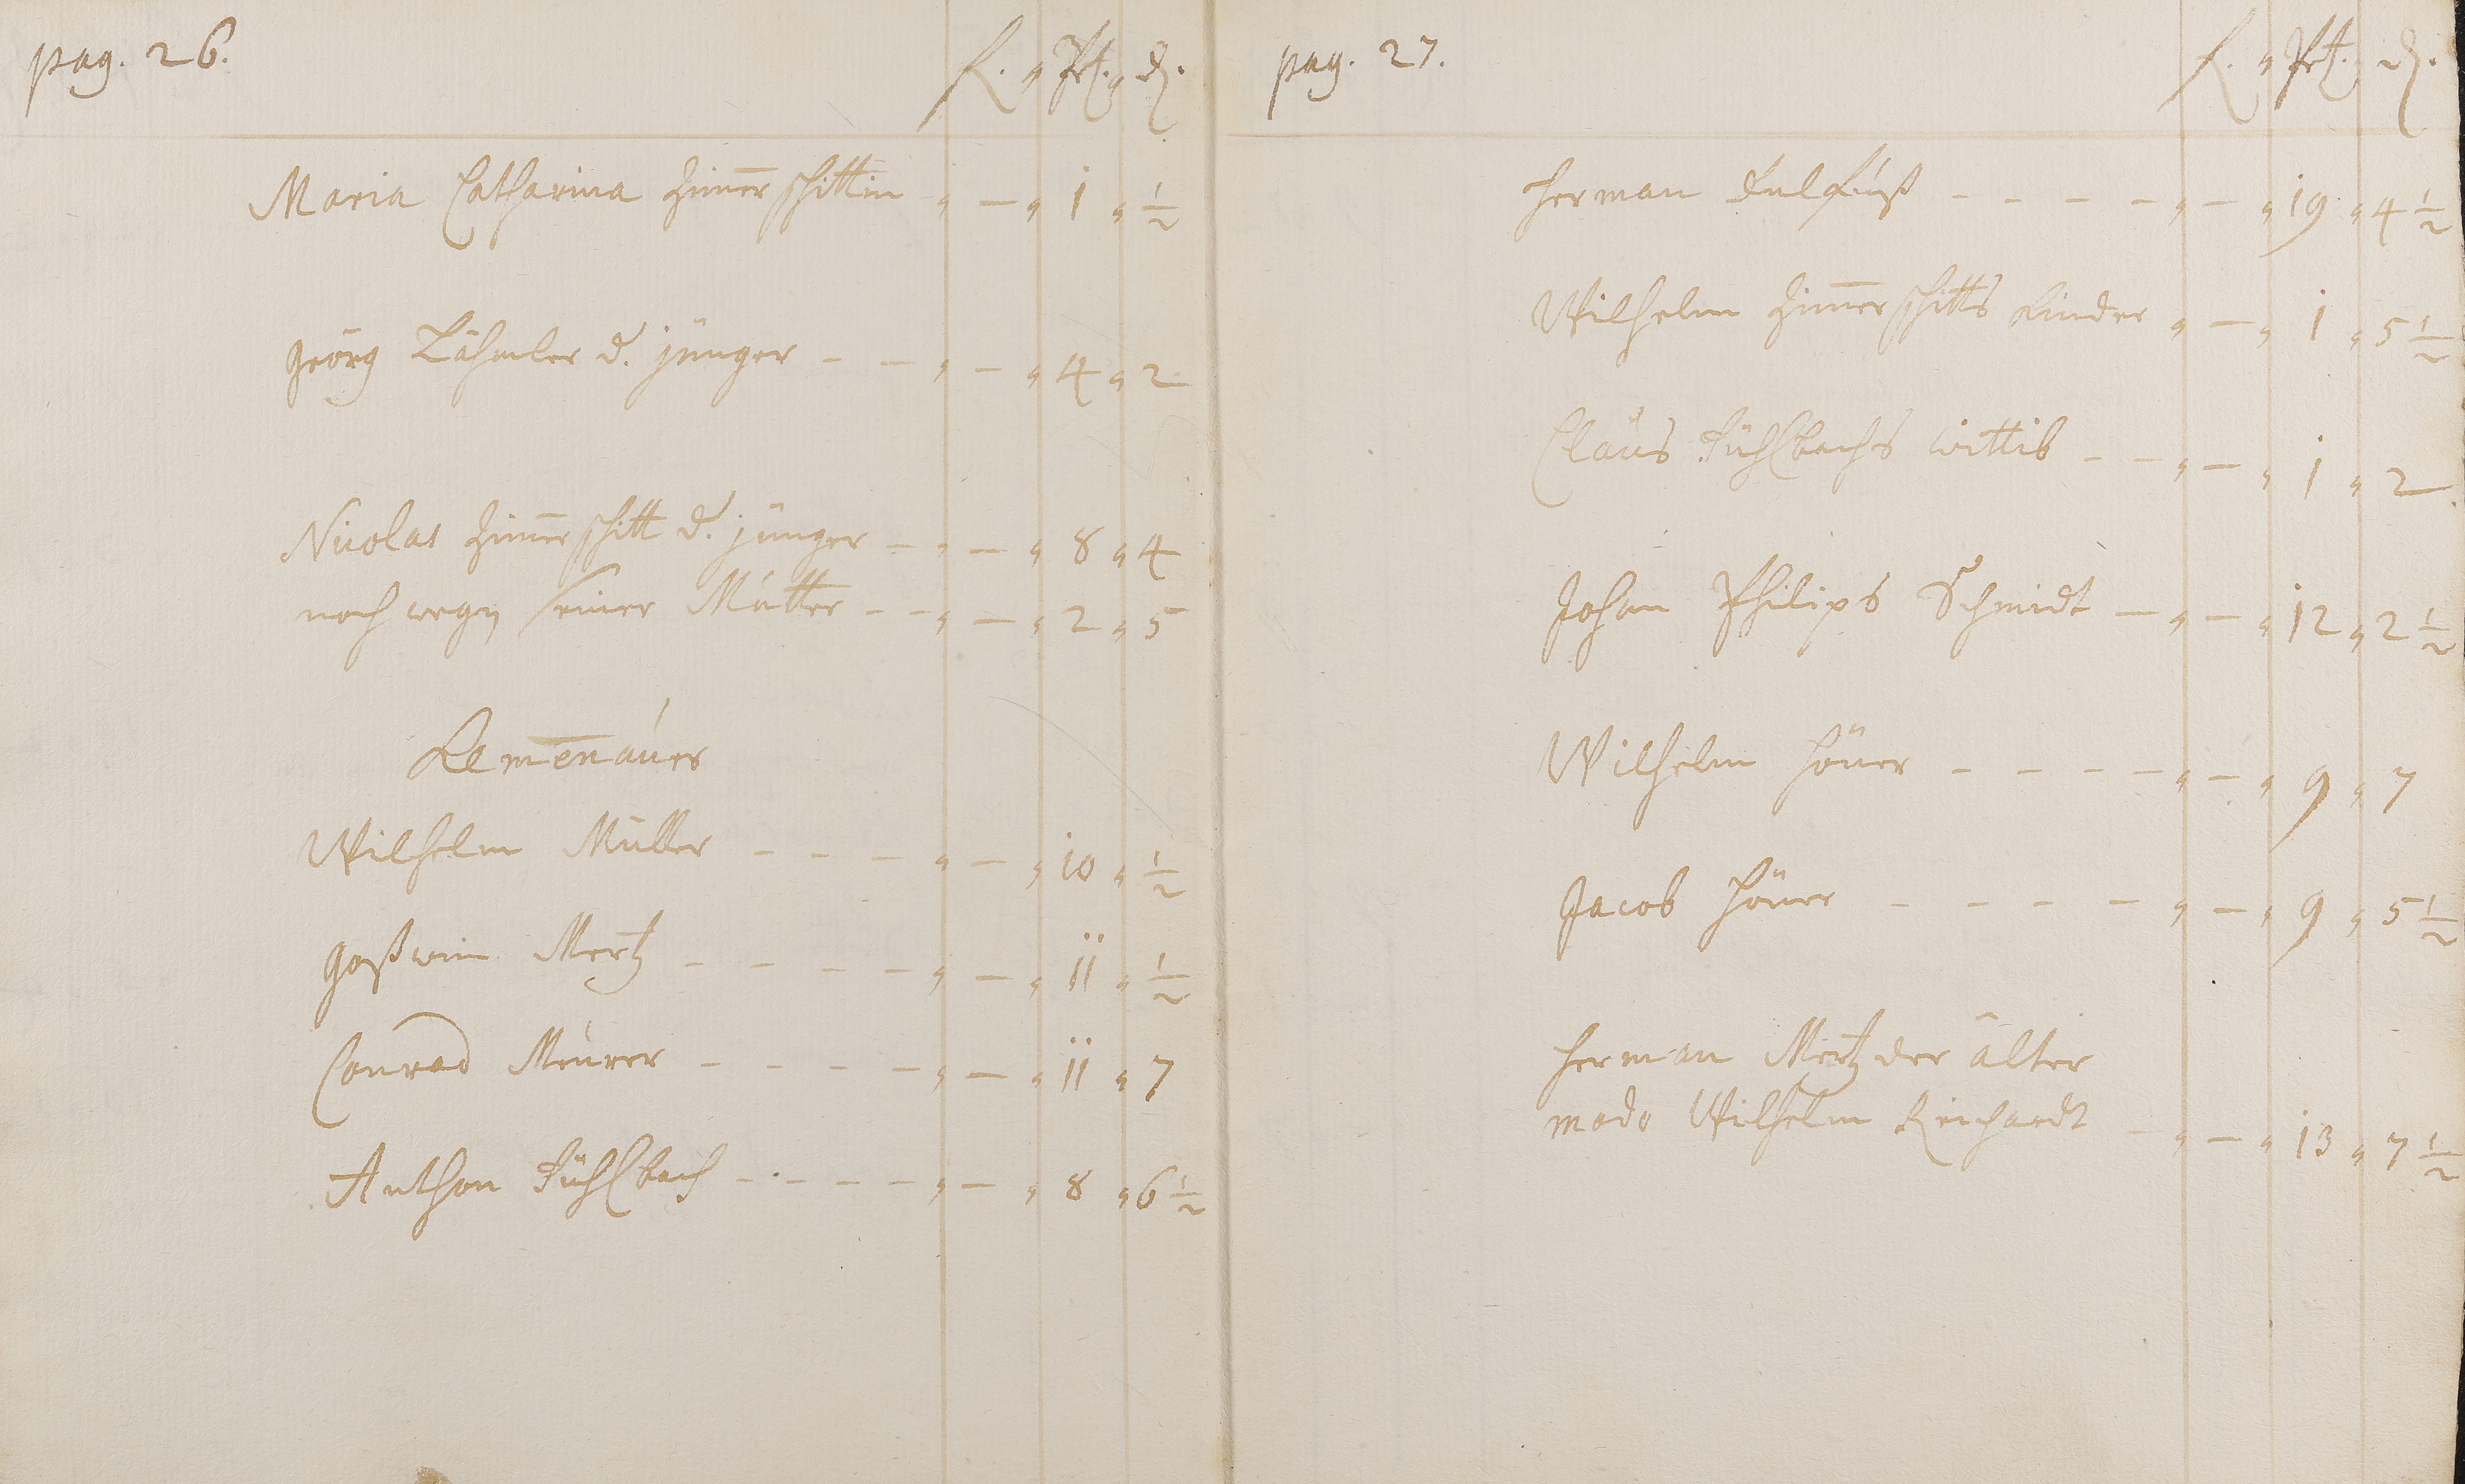 pag. 26.
R. " Pet. " d.
Maria Catharina Zimerschittin " — " 1 " ½
Georg Lähmler d. jünger - — " — " 4 " 2
Nicolas Zimerschitt d. jünger — " — " 8 " 4
noch wegen seiner Mutter - - " — " 2 " 5
Kemenauer
Wilhelm Müller - - - " — " 10 " ½
Goßwin Mertz - - - - " — " 11 " ½
Conrad Meurer - - - - " — " 11 " 7
Anthon Fuhlbach - - - - " — " 8 " 6½
pag. 27.
R. " Pet. " d.
Herman - - - - " — " 19 " 4½
Wilhelm Zimerschitts Kinder " — " 1 " 5½
Claus Fuhlbachs wittib - - " — " 1 " 2
Johan Philips Schmidt — " — " 12 " 2½
Wilhelm Höner - - - - " — " 9 " 7
Jacob Höner - - - - " — " 9 " 5½
Herman Mertz der älter
modo Wilhelm Reichardt - " — " 13 " 7½